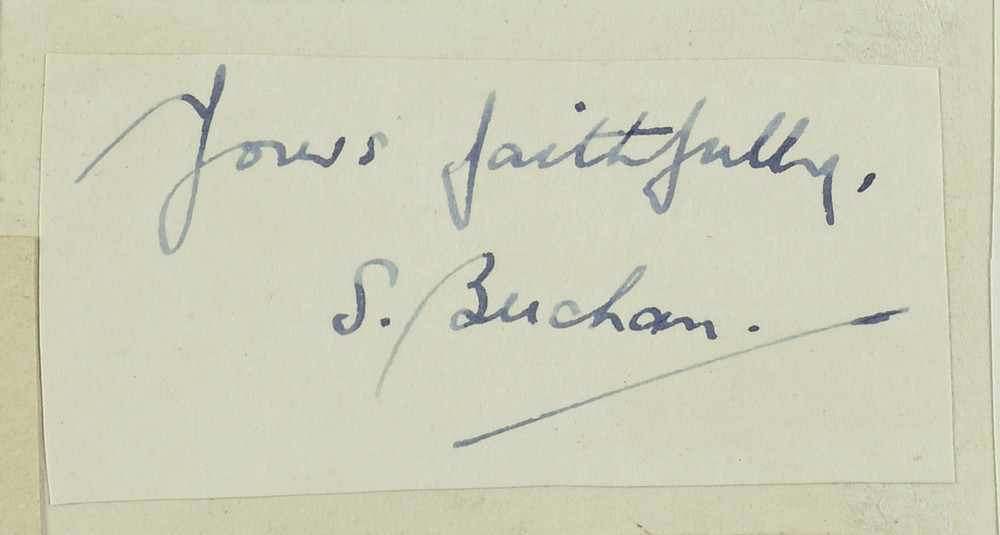 Yours faithfully,
S. Buchan.